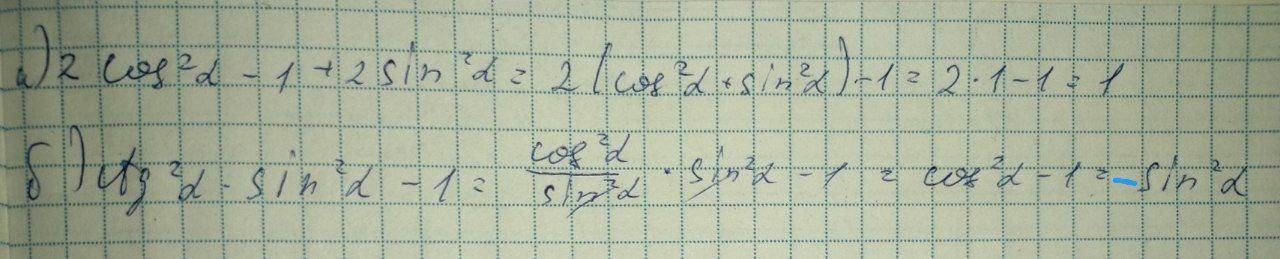 а) 2 cos²α - 1 + 2 sin²α = 2 (cos²α + sin²α) - 1 = 2 · 1 - 1 = 1
б) ctg²α · sin²α - 1 = cos²α / sin²α · sin²α - 1 = cos²α - 1 = - sin²α